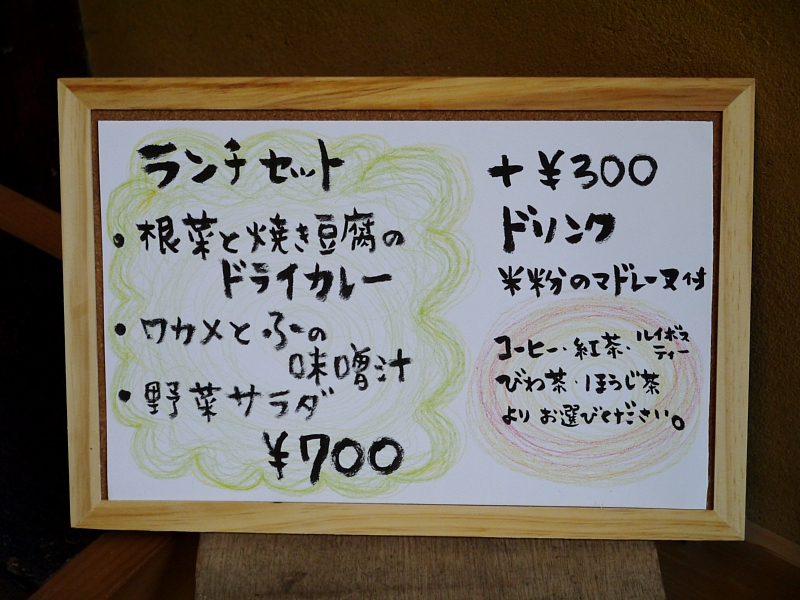 ランチセット
・根菜と焼き豆腐の
ドライカレー
・ワカメとふーの
味噌汁
・野菜サラダ
¥700
+¥300
ドリンク
米粉のマドレーヌ付
コーヒー・紅茶・ルイボスティー
びわ茶・ほうじ茶
よりお選びください。